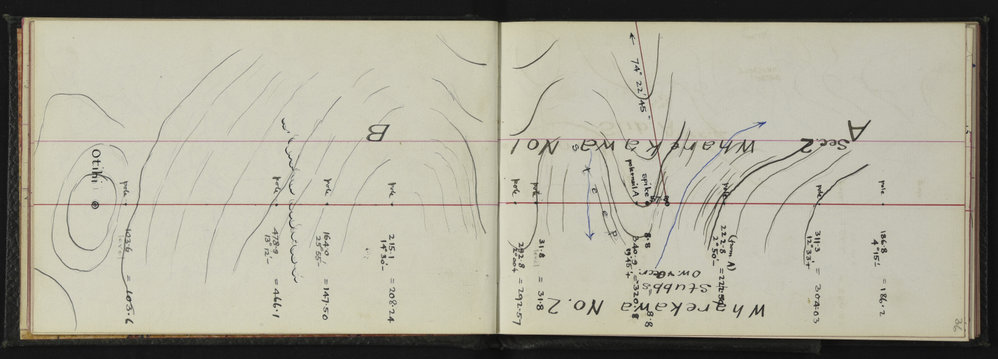 Otihi
pole
103.6 = 103.6
level
pole
478.9 = 466.1
13° 12'
pole
164.0 = 147.50
25° 55'
B
pole
215.1 = 208.24
14° 30'
74° 22' 45"
Wharekawa No 1
Sec. 2
A
pole
292.8 = 292.57
pole
31.8 = 31.8
level
steep
spike
8.8 8.8
pole
(from A)
222.8
2° 50'
pole
311.3 = 304.03
pole
186.8 = 186.2
4° 15'
Stubbs
owner
Wharekawa No. 2
36